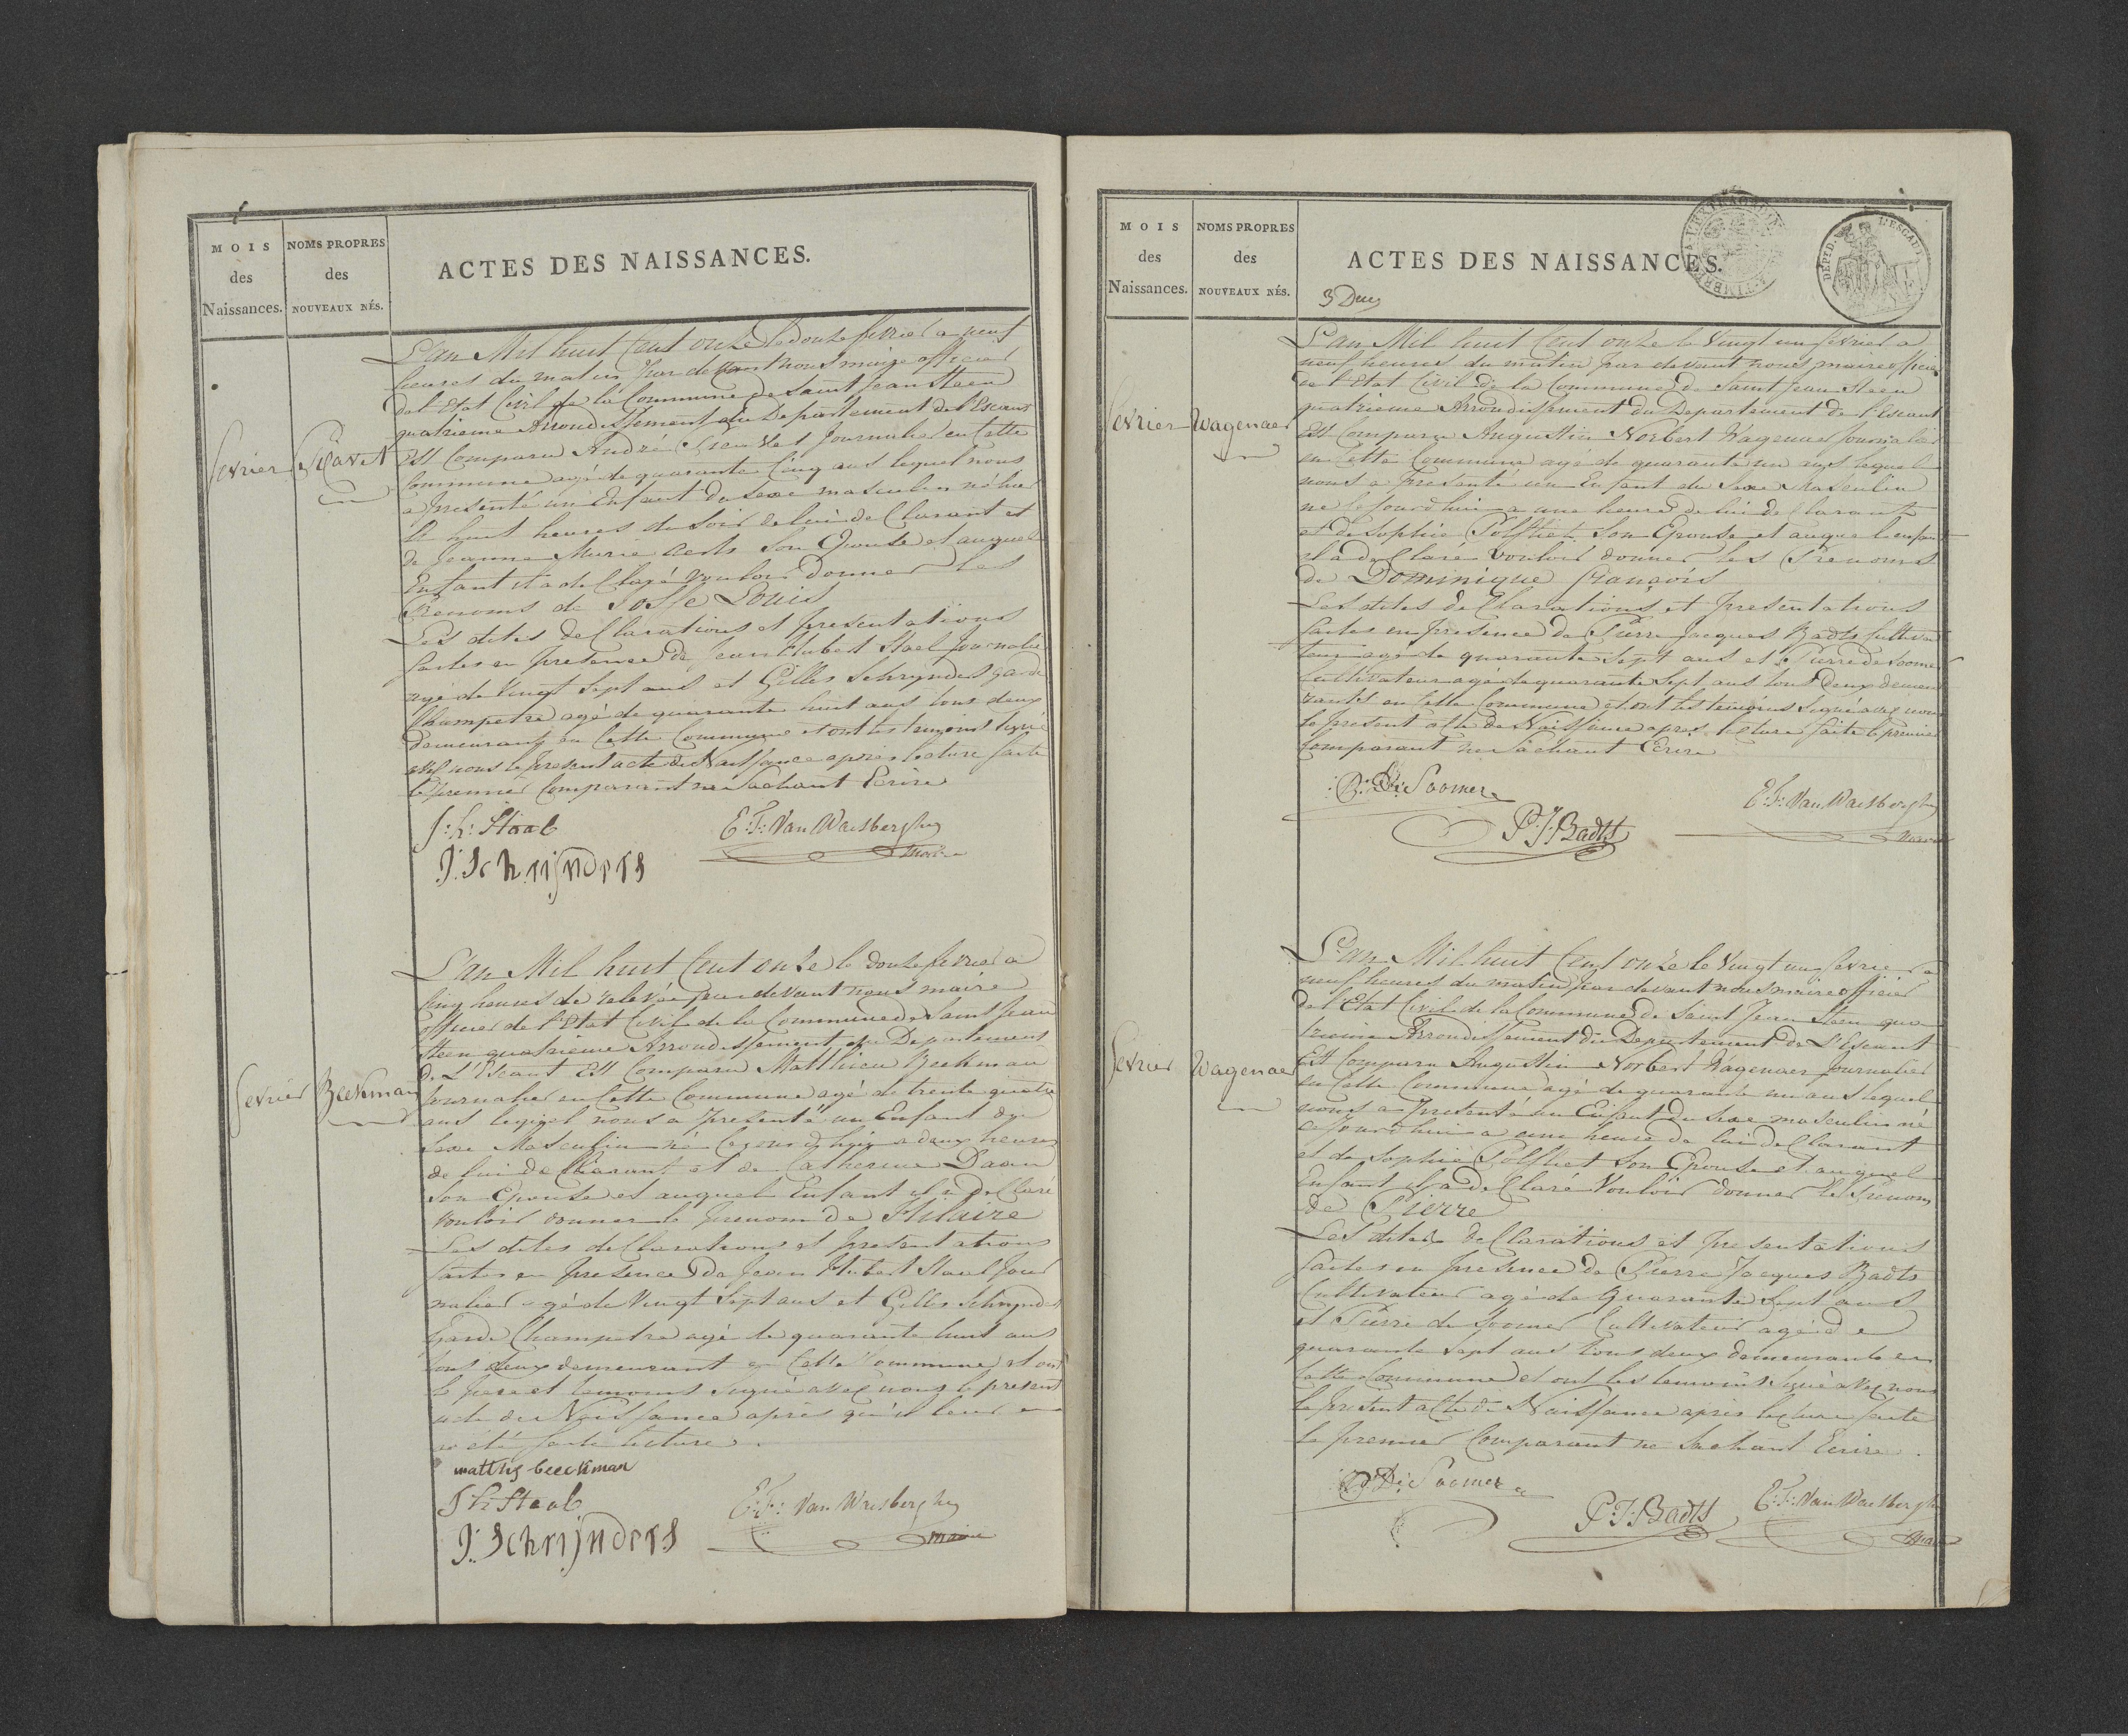 MOIS
des
Naissances.
NOMS PROPRES
des
NOUVEAUX NÉS.
ACTES DES NAISSANCES.
fevrier
L'an Mil huit Cent onze le douze fevrier a neuf
heures du matin par devant nous maire officier
de l'Etat Civil de la Commune de Saint Jean Steen
quatrieme Arrondissement du Departement de l'Escaut
Est Comparu André Journalier en Cette
Commune agé de quarante Cinq ans lequel nous
a presenté un Enfant du Sexe masculin né hier
a huit heures du Soir de lui de Clarant et
de Jeanne Marie Aerts Son Epouse et auquel
Enfant il a de Claré vouloir donner les
Prenoms de Josse Louis
Les dites de Clarations et presentations
faites en presence de Jean Hubert Stael Journalier
agé de Vingt Sept ans et Gilles Schrynders garde
Champetre agé de quarante huit ans tous deux
demeurant en Cette Commune et ont les temoins signé
avec nous le present acte de Naissance apres lecture faite
le premier Comparant ne Sachant Ecrire
J: h: Staal
E: F: Van Waesberghe
maire
J: Schrijnders
fevrier
Beekman
L'an Mil huit Cent onze le douze fevrier a
Cinq heures de relevée par devant nous maire
officier de l'Etat Civil de la Commune de Saint Jean
Steen quatrieme Arrondissement du Departement
de L'Escaut Est Comparu Matthieu Beekman
Journalier en Cette Commune agé de trente quatre
ans lequel nous a presenté un Enfant du
Sexe Masculin né Cejourd'huis a deux heures
de lui de Clarant et de Catherine Daan
Son Epouse et auquel Enfant il a de Claré
vouloir donner le prenom de Hilaire
Les dites de Clarations et presentations
faites en presence de Jean Hubert Stael Jour
nalier agé de Vingt Sept ans et Gilles Schrynders
Garde Champetre agé de quarante huit ans
tous deux demeurant en Cette Commune et ont
le pere et temoins Signé avec nous le present
acte de Naissance apres qu'il leur en
a été faite lecture.
matthijs beeckman
J h: Staal
E: F: Van Waesberghe
maire
J: Schrijnders
MOIS
des
Naissances.
NOMS PROPRES
des
NOUVEAUX NÉS.
ACTES DES NAISSANCES.
DEPT. D. L'ESCAUT
fevrier
Wagenaer
L'an Mil huit Cent onze le Vingt un fevrier a
neuf heures du matin par devant nous maire officier
de l'Etat Civil de la Commune de Saint Jean Steen
quatrieme Arrondissement du Departement de l'Escaut
Est Comparu Augustin Norbert Wagenaer Journalier
en Cette Commune agé de quarante un ans lequel
nous a presenté un Enfant du Sexe Masculin
né Cejourdhui a une heure de lui de Clarant
et de Sophie Polfliet Son Epouse et auquel enfant
il a de Claré vouloir donner les Prenoms
de Dominique François
Les dites de Clarations et presentations
faites en presence de Pierre Jacques Badts Cultiva
teur agé de quarante Sept ans et Pierre de Soomer
Cultivateur agé de quarante Sept ans tous Deux demeu
rants en Cette Commune et ont les temoins Signé avec nous
le present acte de Naissance apres lecture faite le premier
Comparant ne Sachant Ecrire
P: De Soomer
E: F: Van Waesberghe
P: J: Badts
maire
fevrier
Wagenaer
L'an Mil huit Cent onze le Vingt un fevrier a
neuf heures du matin par devant nous maire officier
de l'Etat Civil de la Commune de Saint Jean Steen qua
trieme Arrondissement du Departement de L'Escaut
Est Comparu Augustin Norbert Wagenaer Journalier
en Cette Commune agé de quarante un ans lequel
nous a presenté un Enfant du Sexe masculin né
cejourd'hui a une heure de lui de Clarant
et de Sophie Polfliet Son Epouse et auquel
Enfant il a de Claré Vouloir donner le Prenom
de Pierre
Les dites de Clarations et presentations
faites en presence de Pierre Jacques Badts
Cultivateur agé de quarante Sept ans
et Pierre de Soomer Cultivateur agé de
quarante Sept ans tous deux demeurants en
Cette Commune et ont les temoins Signé avec nous
le present acte de Naissance apres lecture faite
le premier Comparant ne Sachant Ecrire.
P: De Soomer
P: J: Badts
E: F: Van Waesberghe
maire